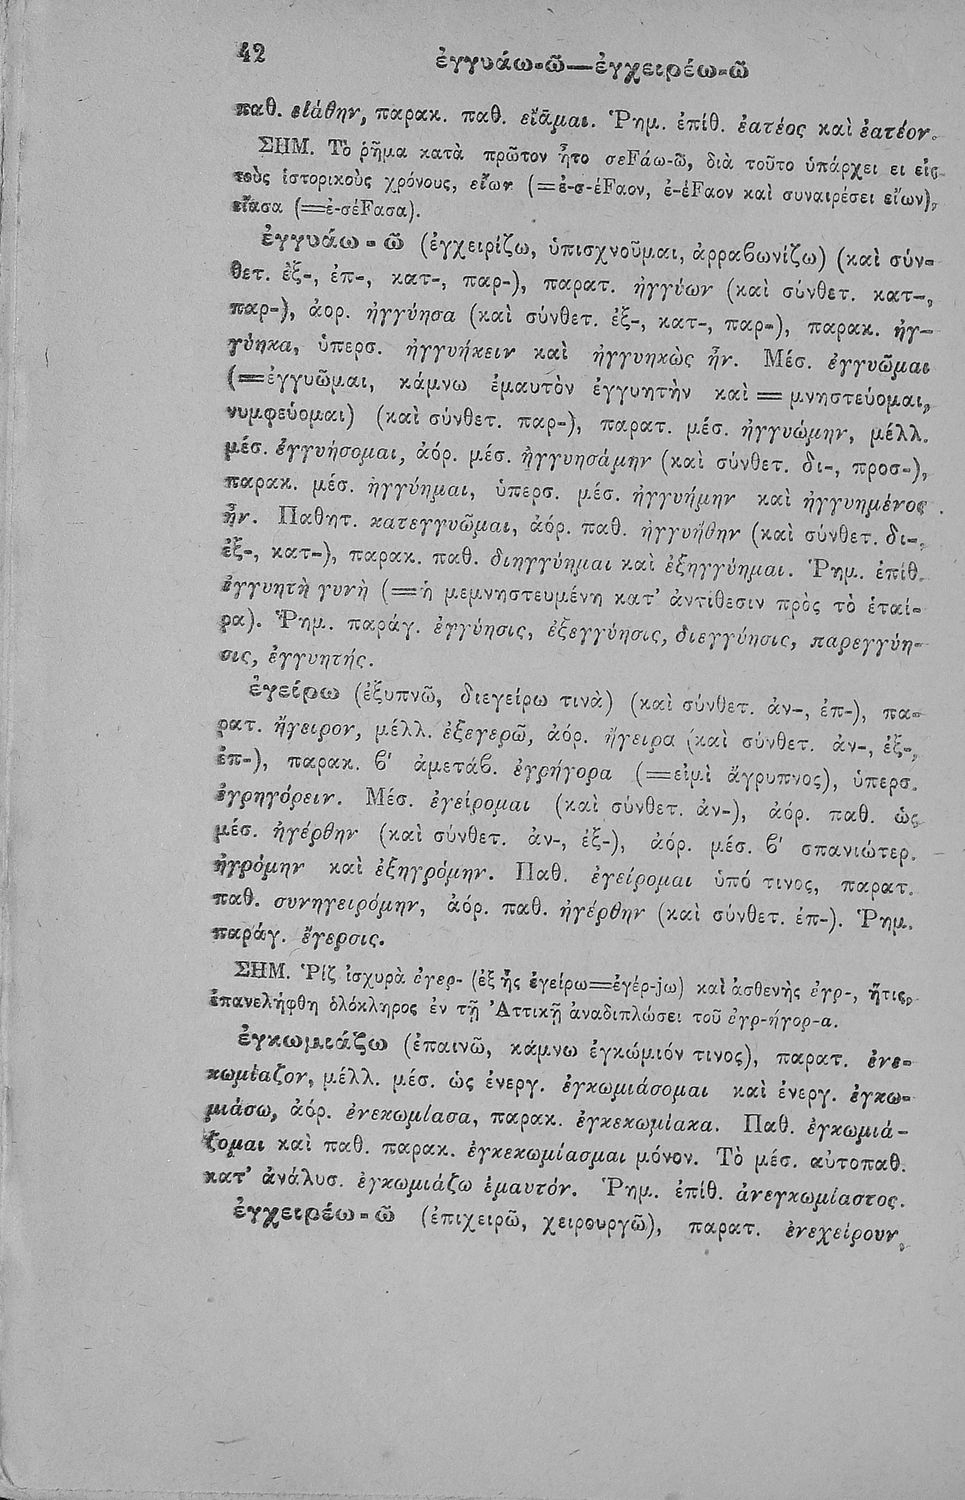 42
ἐγγυάω-ῶ—ἐγχειρέω-ῶ
παθ. εἰάθην, παρακ. παθ. εἴαμαι. Ῥημ. ἐπίθ. ἐατέος καὶ ἐατέον.
ΣΗΜ. Τὸ ῥῆμα κατὰ πρῶτον ἦτο σεFάω-ῶ, διὰ τοῦτο ὑπάρχει ει εἰς
τοὺς ἱστορικοὺς χρόνους, εἴων (=ἐ-σ-έFαον, ἐ-έFαον καὶ συναιρέσει εἴων),
εἴασα (=ἐ-σέFασα).
ἐγγυάω-ῶ (ἐγχειρίζω, ὑπισχνοῦμαι, ἀρραϐωνίζω) (καὶ σύν-
θετ. ἐξ-, ἐπ-, κατ-, παρ-), παρατ. ἠγγύων (καὶ σύνθετ. κατ-,
παρ-), ἀορ. ἠγγύησα (καὶ σύνθετ. ἐξ-, κατ-, παρ-), παρακ. ἠγ-
γύηκα, ὑπερσ. ἠγγυήκειν καὶ ἠγγυηκὼς ἦν. Μέσ. ἐγγυῶμαι
(=ἐγγυῶμαι, κάμνω ἐμαυτὸν ἐγγυητὴν καὶ = μνηστεύομαι,
νυμφεύομαι) (καὶ σύνθετ. παρ-), παρατ. μέσ. ἠγγυώμην, μέλλ.
μέσ. ἐγγυήσομαι, ἀόρ. μέσ. ἠγγυησάμην (καὶ σύνθετ. δι-, προσ-),
παρακ. μέσ. ἠγγύημαι, ὑπερσ. μέσ. ἠγγυήμην καὶ ἠγγυημένος
ἦν. Παθητ. κατεγγυῶμαι, ἀόρ. παθ. ἠγγυήθην (καὶ σύνθετ. δι-,
ἐξ-, κατ-), παρακ. παθ. διηγγύημαι καὶ ἐξηγγύημαι. Ῥημ. ἐπίθ.
ἐγγυητὴ γυνὴ (=ἡ μεμνηστευμένη κατ' ἀντίθεσιν πρὸς τὸ ἑταί-
ρα). Ῥημ. παράγ. ἐγγύησις, ἐξεγγύησις, διεγγύησις, παρεγγύη-
σις, ἐγγυητής.
ἐγείρω (ἐξυπνῶ, διεγείρω τινὰ) (καὶ σύνθετ. ἀν-, ἐπ-), πα-
ρατ. ἤγειρον, μέλλ. ἐξεγερῶ, ἀόρ. ἤγειρα (καὶ σύνθετ. ἀν-, ἐξ-,
ἐπ-), παρακ. ϐ' ἀμετάϐ. ἐγρήγορα (=εἰμὶ ἄγρυπνος), ὑπερσ.
ἐγρηγόρειν. Μέσ. ἐγείρομαι (καὶ σύνθετ. ἀν-), ἀόρ. παθ. ὡς
μέσ. ἠγέρθην (καὶ σύνθετ. ἀν-, ἐξ-), ἀόρ. μέσ. ϐ' σπανιώτερ.
ἠγρόμην καὶ ἐξηγρόμην. Παθ. ἐγείρομαι ὑπό τινος, παρατ.
παθ. συνηγειρόμην, ἀόρ. παθ. ἠγέρθην (καὶ σύνθετ. ἐπ-). Ῥημ.
παράγ. ἔγερσις.
ΣΗΜ. Ῥίζ ἰσχυρὰ ἐγερ- (ἐξ ἧς ἐγείρω=ἐγέρ-jω) καὶ ἀσθενὴς ἐγρ-, ἥτις,
ἐπανελήφθη ὁλόκληρος ἐν τῇ Ἀττικῇ ἀναδιπλώσει τοῦ ἐγρ-ήγορ-α.
ἐγκωμιάζω (ἐπαινῶ, κάμνω ἐγκώμιόν τινος), παρατ. ἐνε-
κωμίαζον, μέλλ. μέσ. ὡς ἐνεργ. ἐγκωμιάσομαι καὶ ἐνεργ. ἐγκω-
μιάσω, ἀόρ. ἐνεκωμίασα, παρακ. ἐγκεκωμίακα. Παθ. ἐγκωμιά-
ζομαι καὶ παθ. παρακ. ἐγκεκωμίασμαι μόνον. Τὸ μέσ. αὐτοπαθ.
κατ' ἀνάλυσ. ἐγκωμιάζω ἐμαυτόν. Ῥημ. ἐπίθ. ἀνεγκωμίαστος.
ἐγχειρέω-ῶ (ἐπιχειρῶ, χειρουργῶ), παρατ. ἐνεχείρουν,